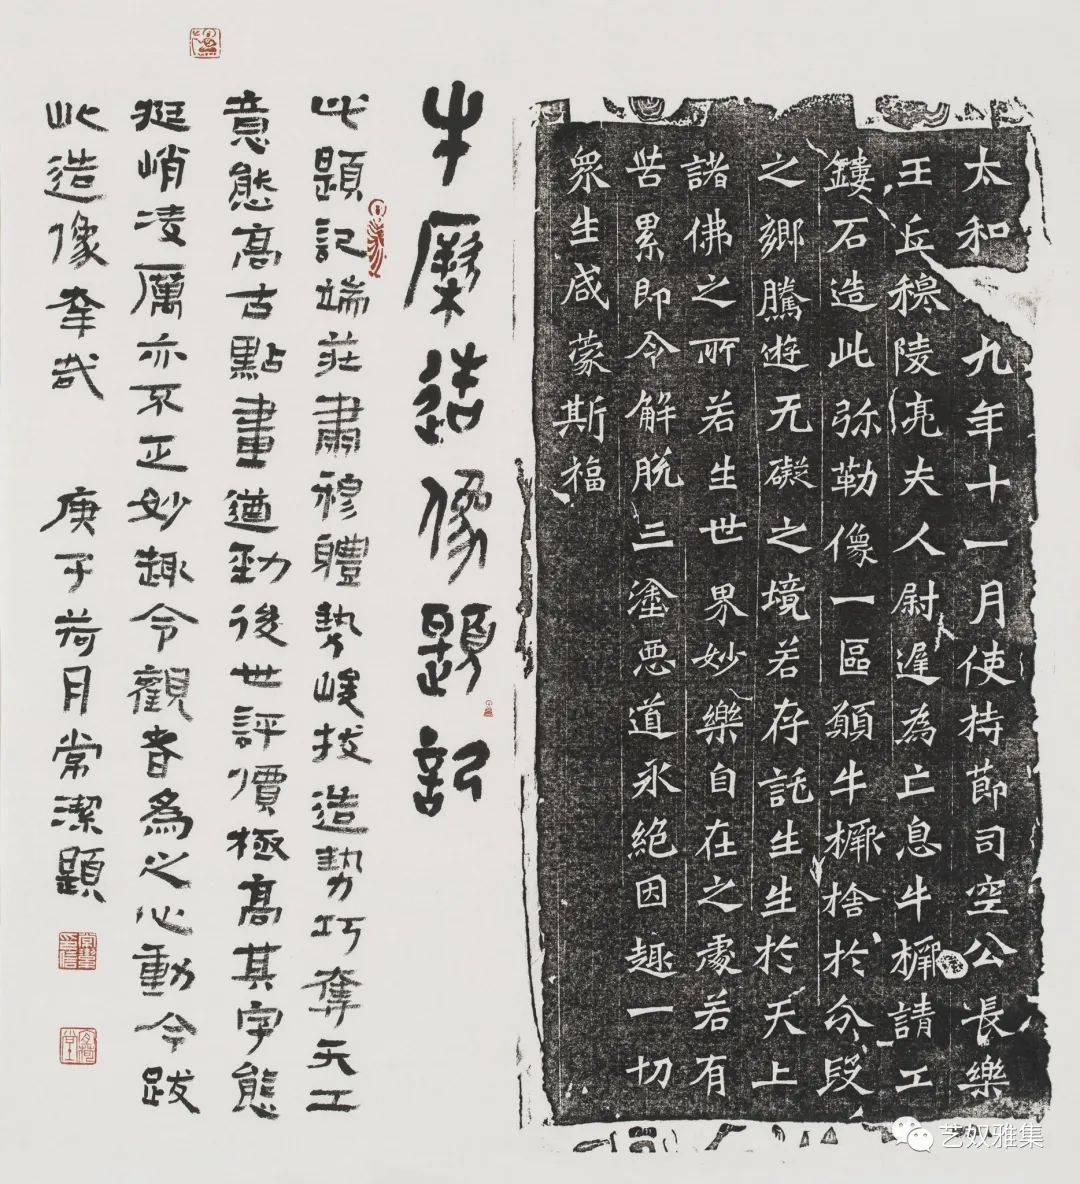 太和九年十一月使持莭司空公長樂
王丘穆陵亮夫人尉遲為亡息牛橛請工
鏤石造此弥勒像一區願牛橛捨於分段
之鄉騰遊无礙之境若存託生生於天上
諸佛之所若生世界妙樂自在之處若有
苦累即令解脫三塗惡道永絕因趣一切
衆生咸蒙斯福
牛厥造像題記
此題記端莊肅穆體勢峻拔造勢巧奪天工
意態高古點畫遒勁後世評價極高其字態
挺峭凌厲亦不正妙趣令觀者為之心動今跋
此造像幸哉 庚子荷月常潔題
艺奴雅集